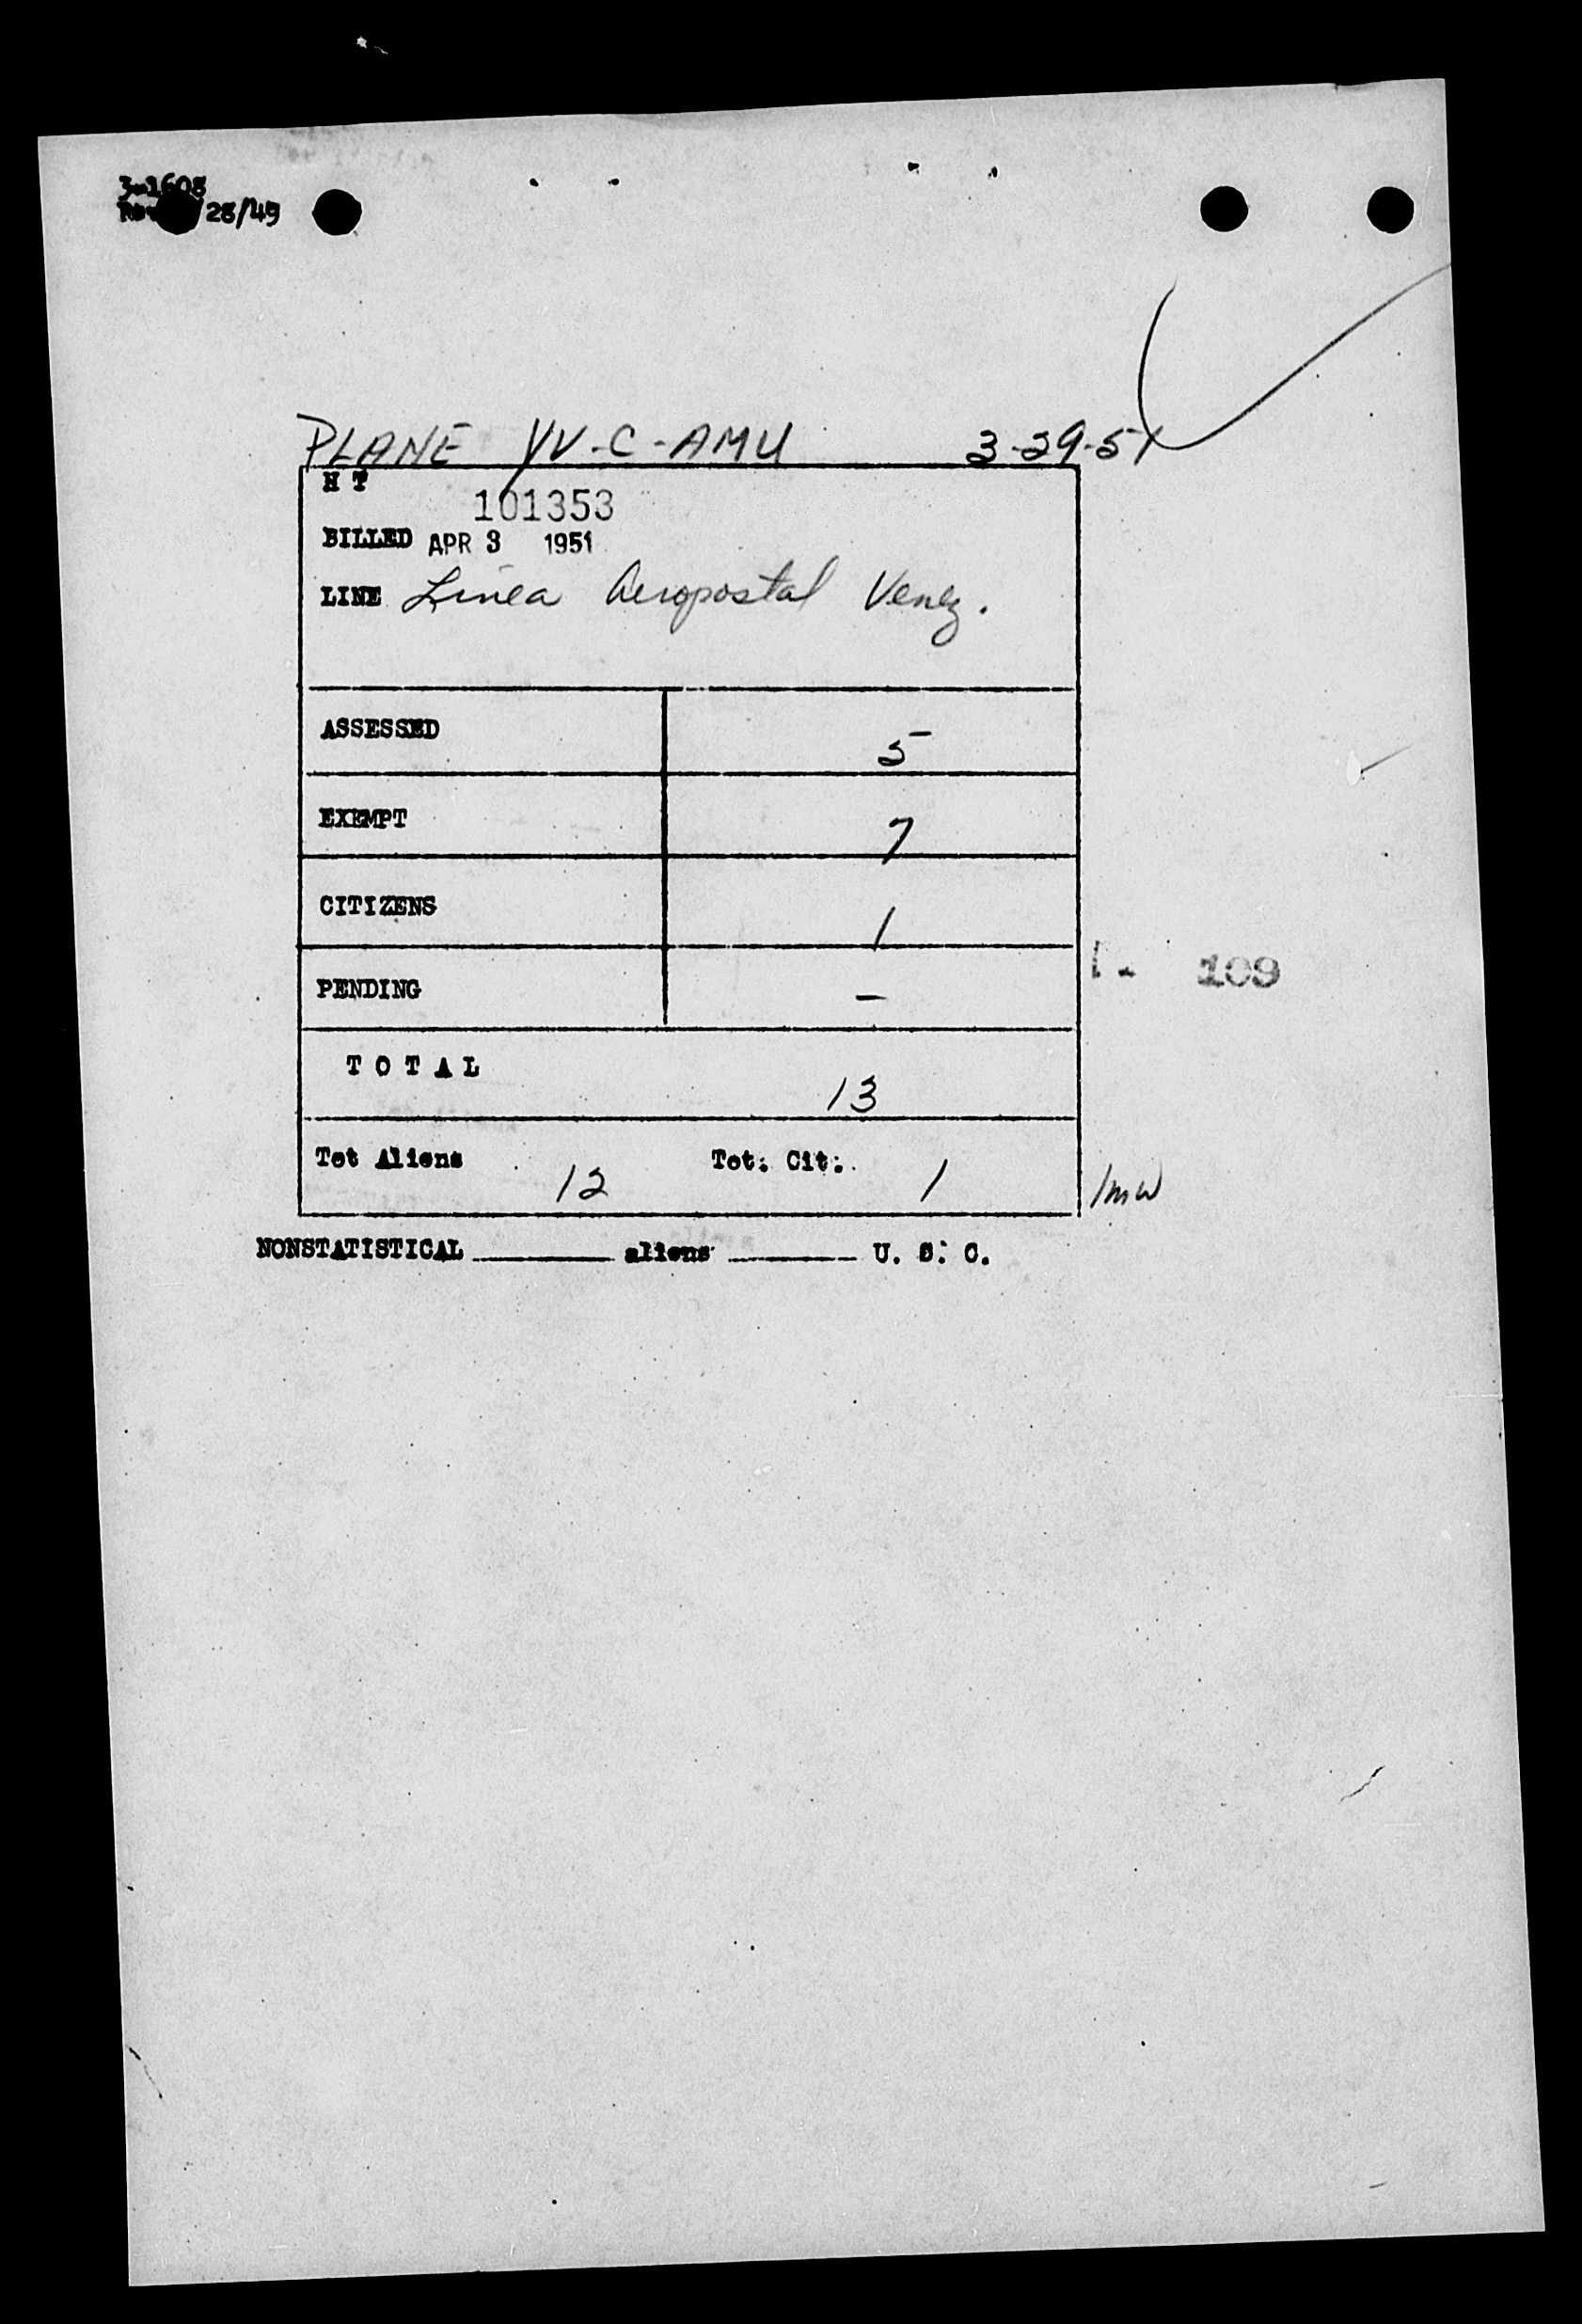 3-1608
28/49
PLANE YV-C-AMU 3-29-51
H T
101353
BILLED APR 3 1951
LINE Linea Aeropostal Venez.
ASSESSED 5
EXEMPT 7
CITIZENS 1
PENDING -
T O T A L 13
Tot Aliens 12 Tot. Cit. 1
109
NONSTATISTICAL ______ aliens ______ U. S. C.